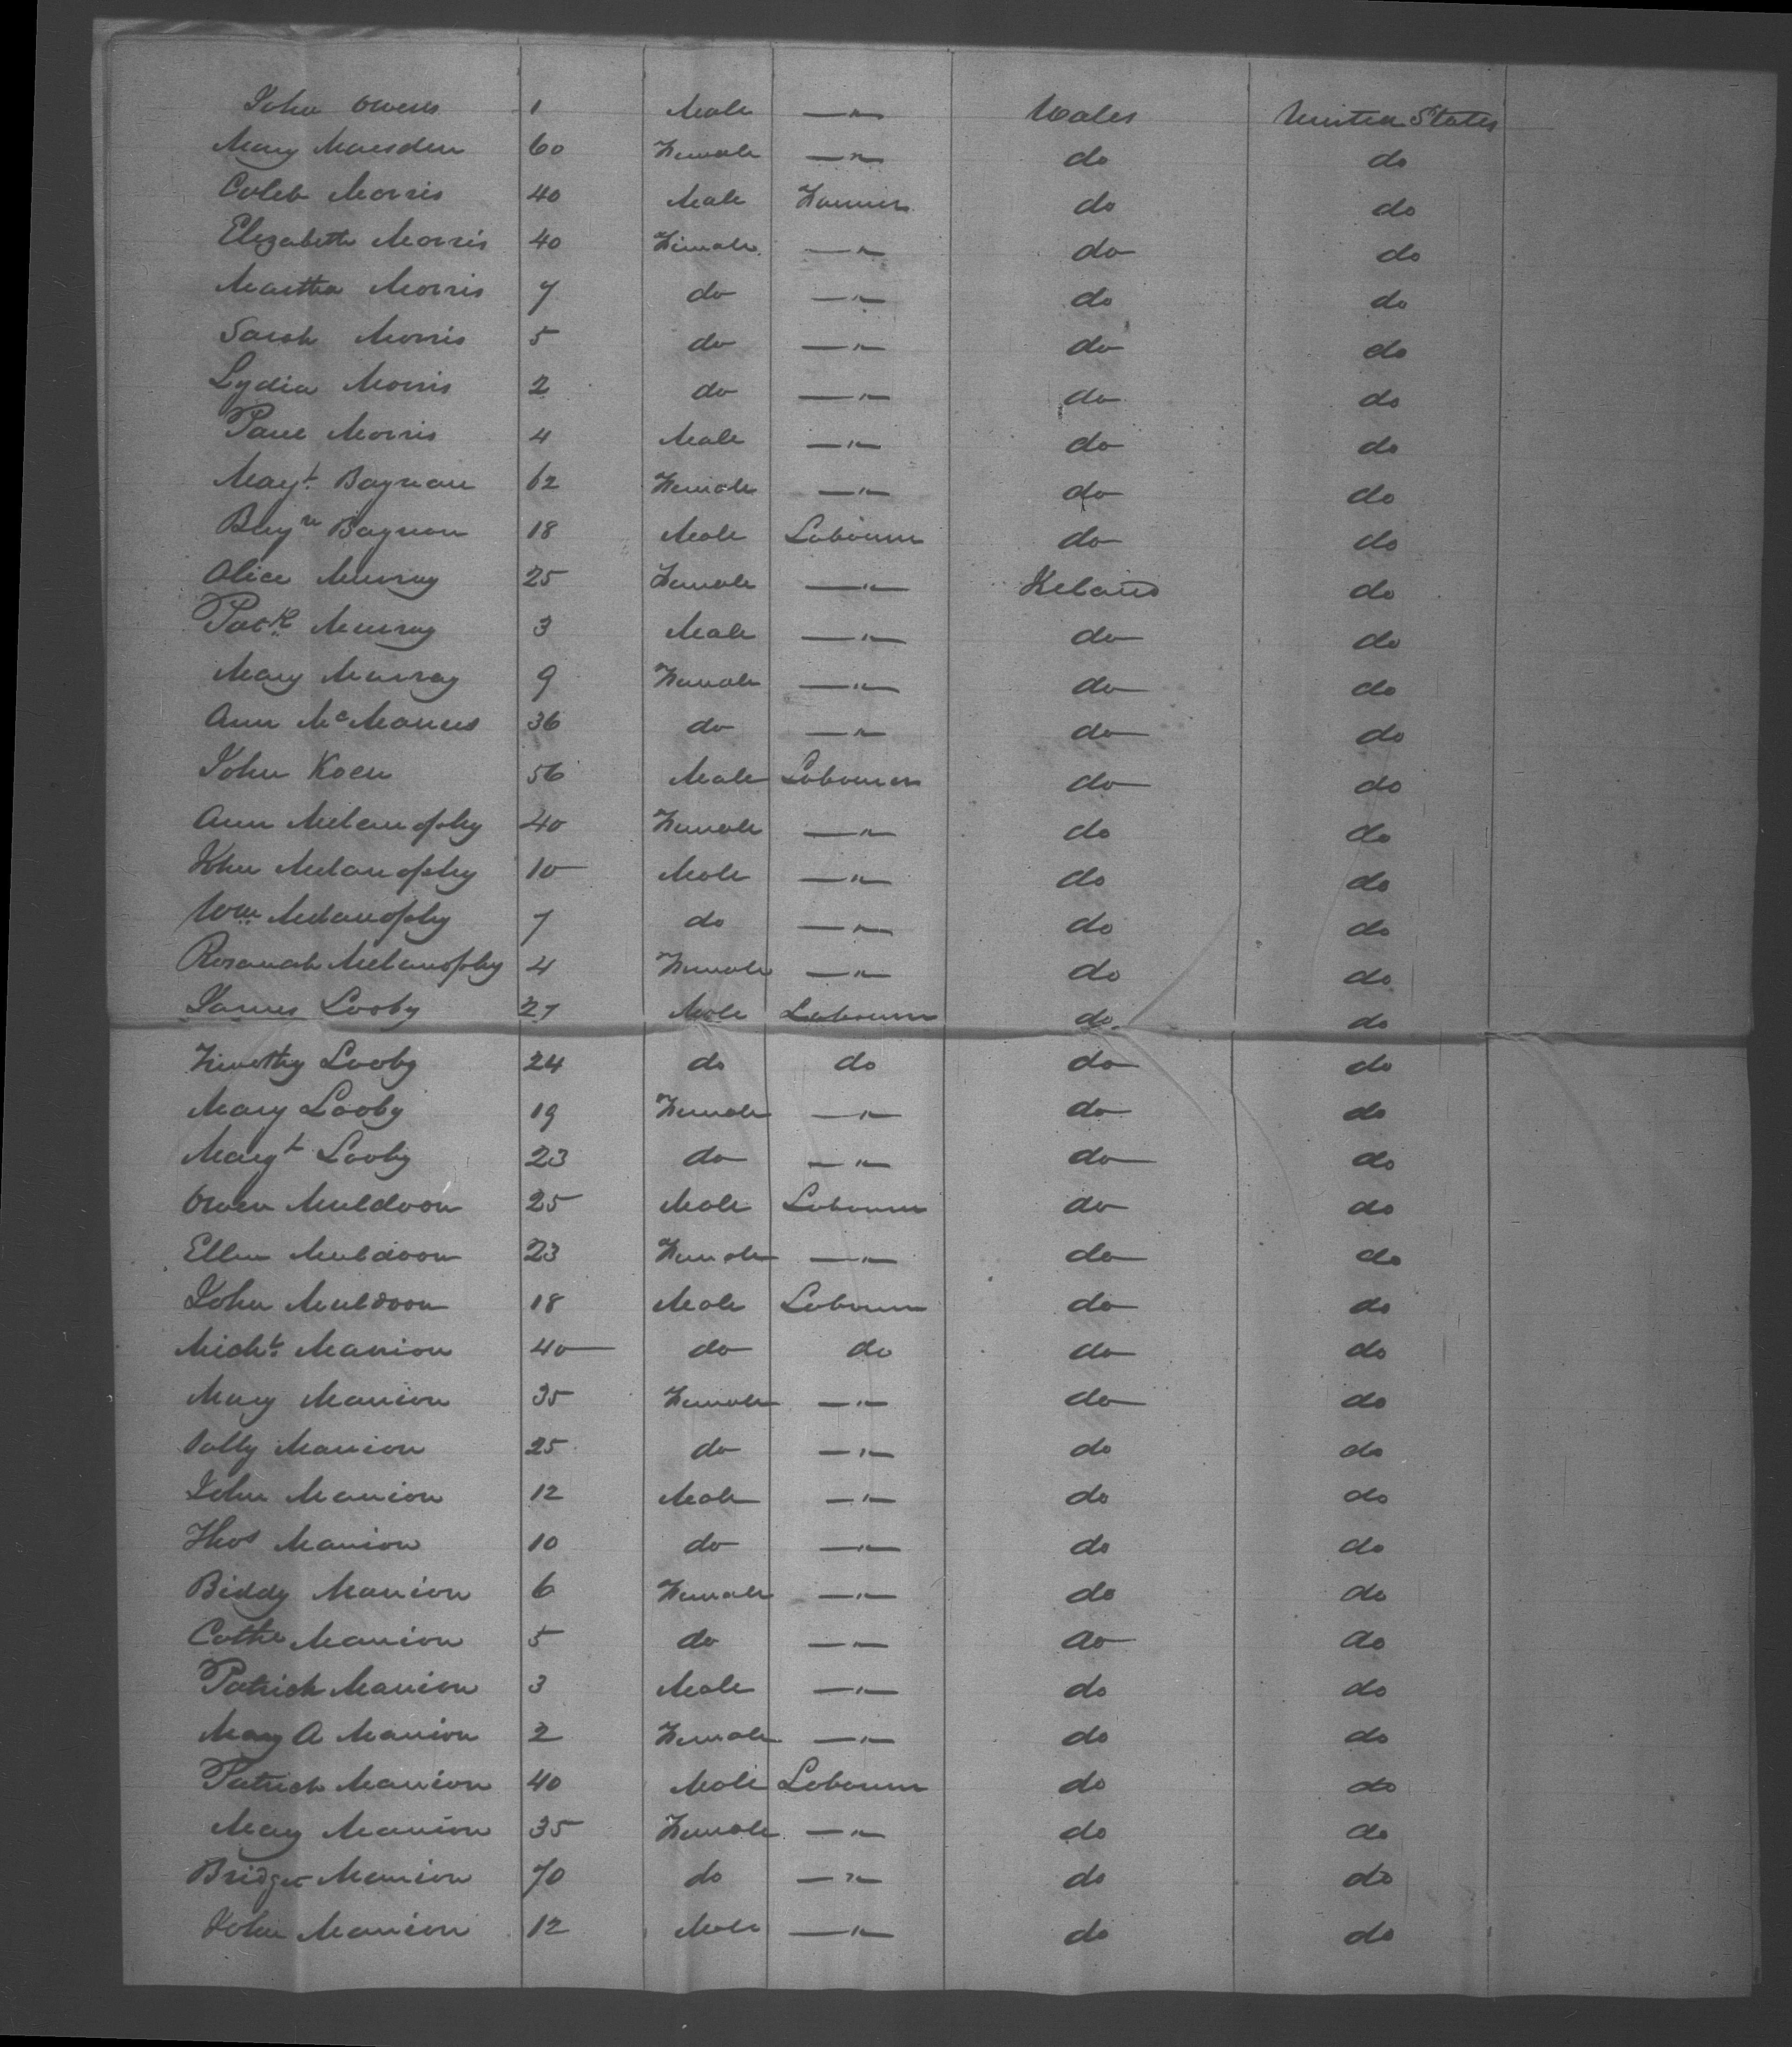 John Owens 1 Male —"— Wales United States
Mary Marsden 60 Female —"— do do
Caleb Morris 40 Male Farmer do do
Elizabeth Morris 40 Female —"— do do
Martha Morris 7 do —"— do do
Sarah Morris 5 do —"— do do
Lydia Morris 2 do —"— do do
Paul Morris 4 Male —"— do do
Margt. Baynon 62 Female —"— do do
Benjn Baynon 18 Male Labourer do do
Alice Murray 25 Female —"— Ireland do
Patk Murray 3 Male —"— do do
Mary Murray 9 Female —"— do do
Ann McManus 36 do —"— do do
John Koen 56 Male Labourer do do
Ann Melanophy 40 Female —"— do do
John Melanophy 10 Male —"— do do
Wm Melanophy 7 do —"— do do
Rosanah Melanophy 4 Female —"— do do
James Looby 27 Male Labourer do do
Timothy Looby 24 do do do do
Mary Looby 19 Female —"— do do
Margt Looby 23 do —"— do do
Owen Muldoon 25 Male Labourer do do
Ellen Muldoon 23 Female —"— do do
John Muldoon 18 Male Labourer do do
Michl. Manion 40 do do do do
Mary Manion 35 Female —"— do do
Sally Manion 25 do —"— do do
John Manion 12 Male —"— do do
Thos Manion 10 do —"— do do
Biddy Manion 6 Female —"— do do
Cathe Manion 5 do —"— do do
Patrick Manion 3 Male —"— do do
Mary A Manion 2 Female —"— do do
Patrick Manion 40 Male Labourer do do
Mary Manion 35 Female —"— do do
Bridget Manion 70 do —"— do do
John Manion 12 Male —"— do do